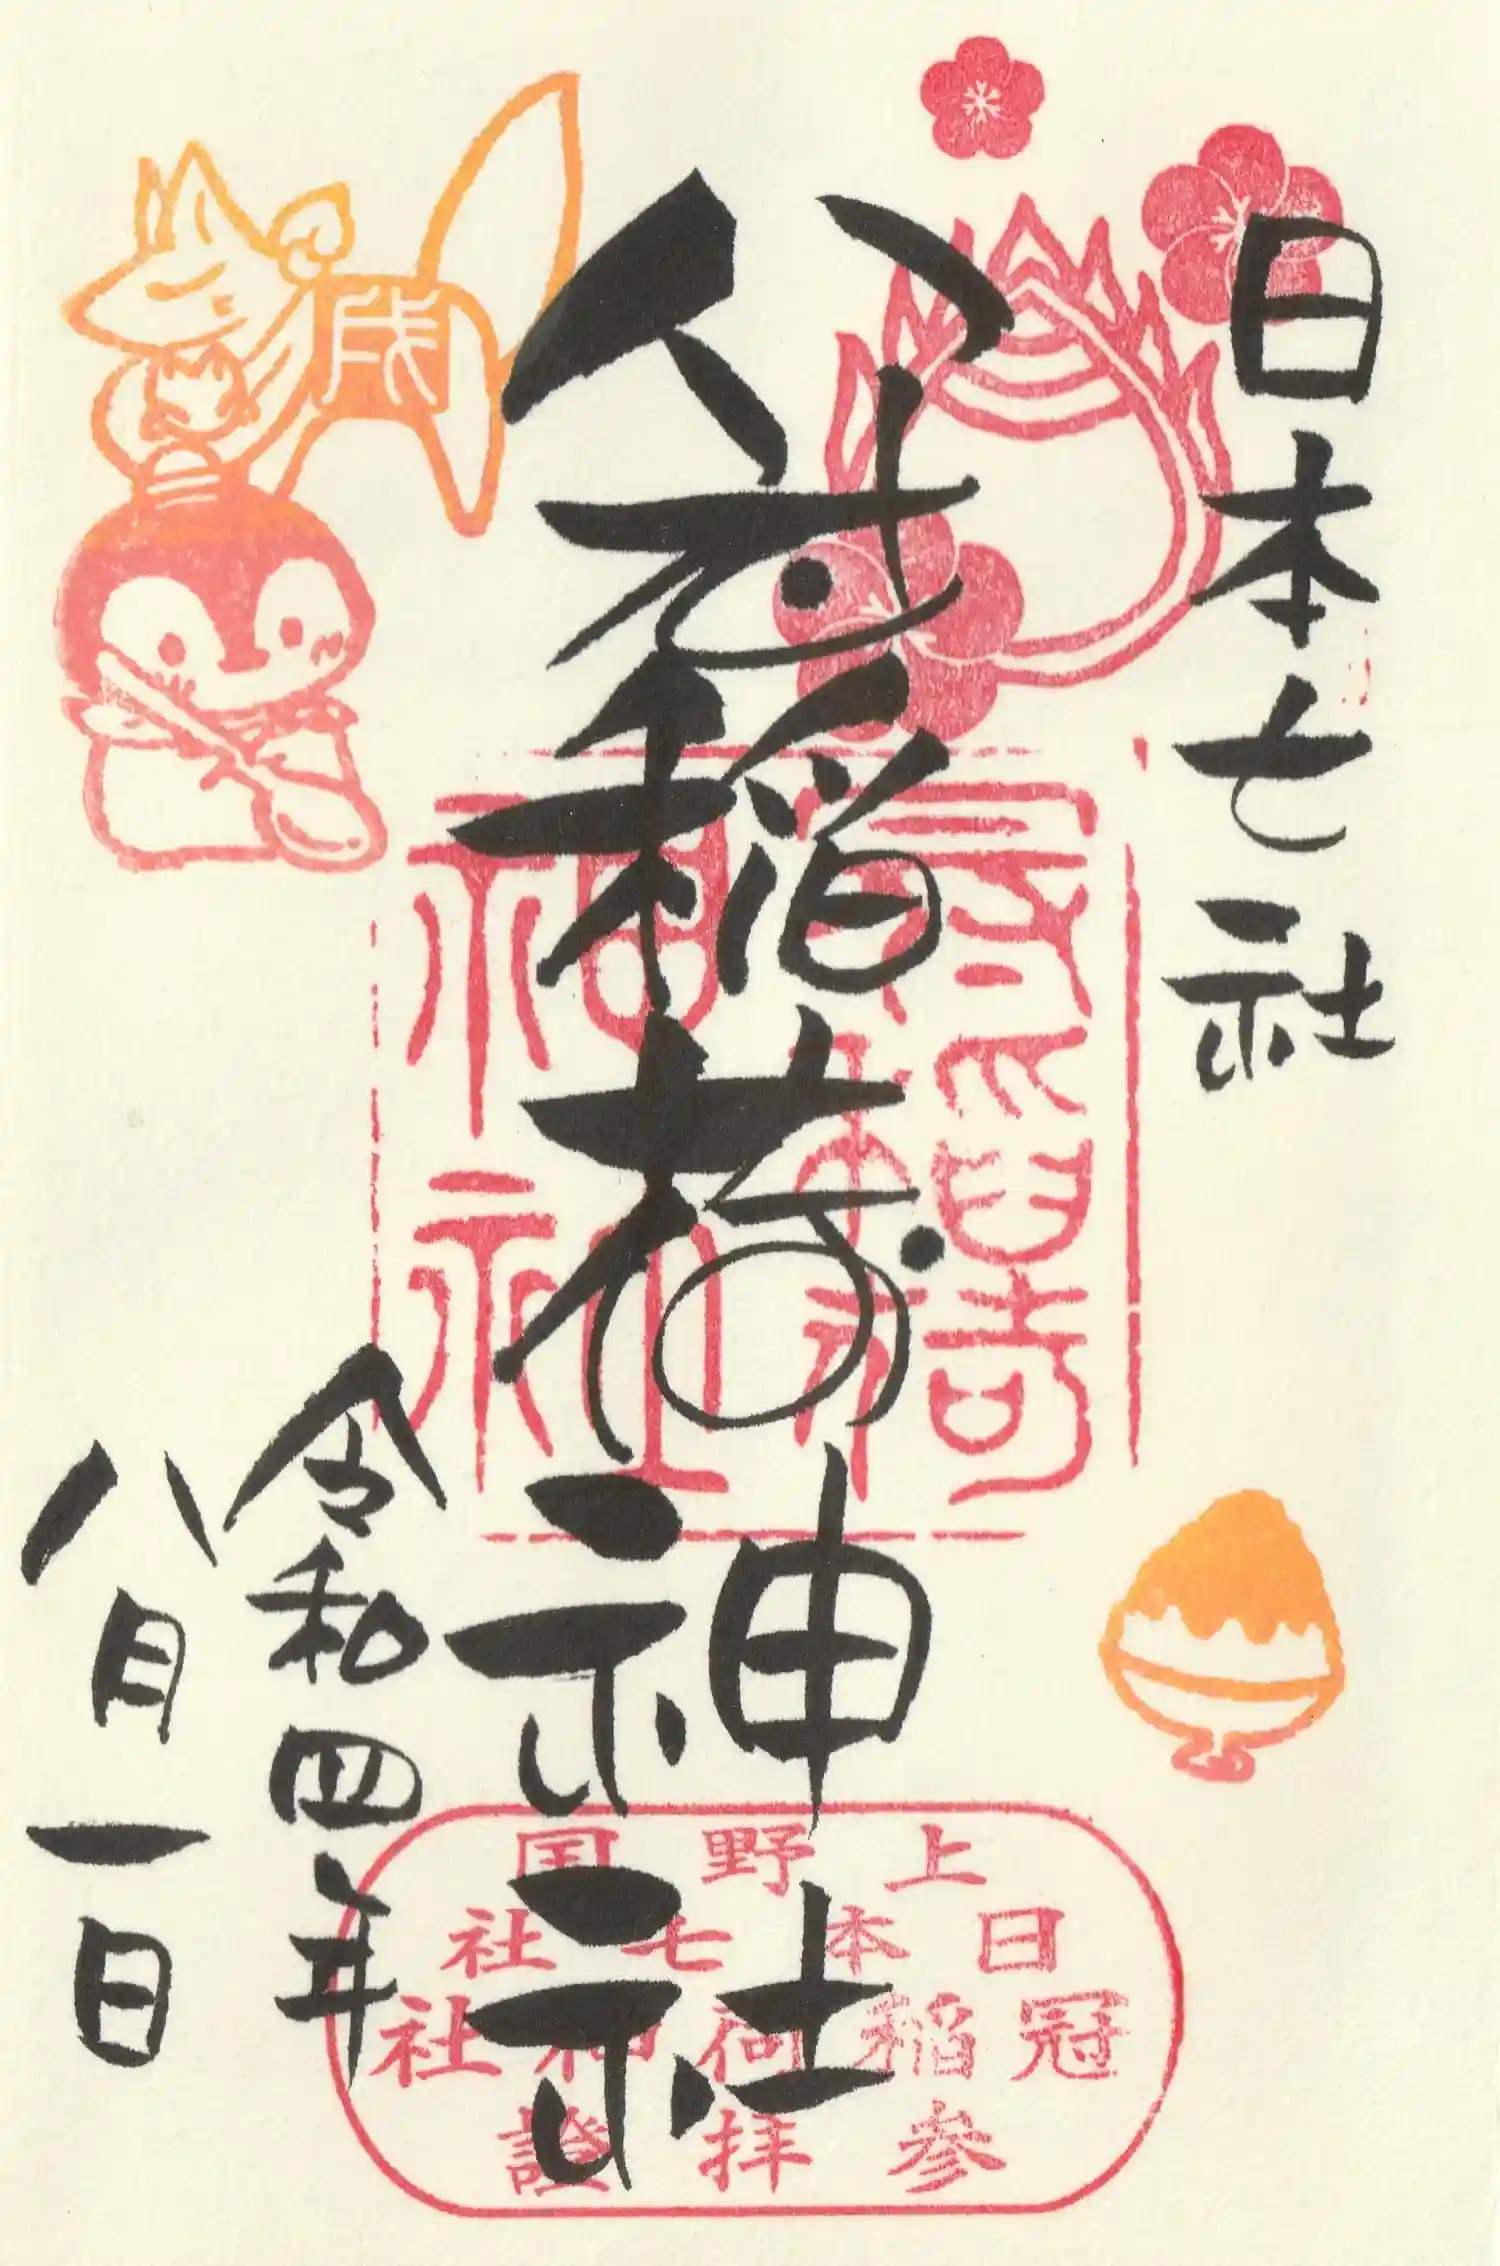 日本七社
冠稲荷神社
令和四年
八月一日
冠稲荷
神社
上野国
日本七社
冠稲荷神社
参拝證